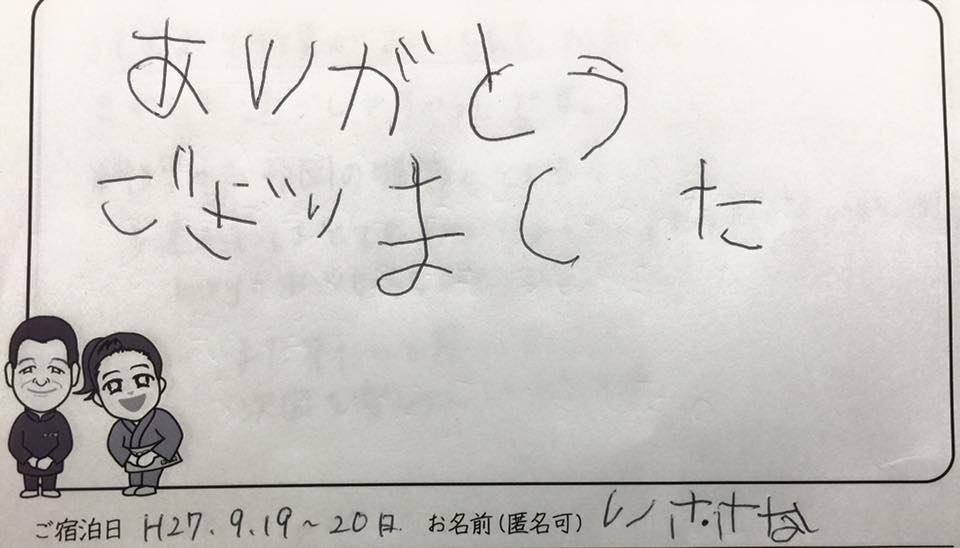 ありがとう
ございました
ご宿泊日 H27.9.19～20日 お名前(匿名可)